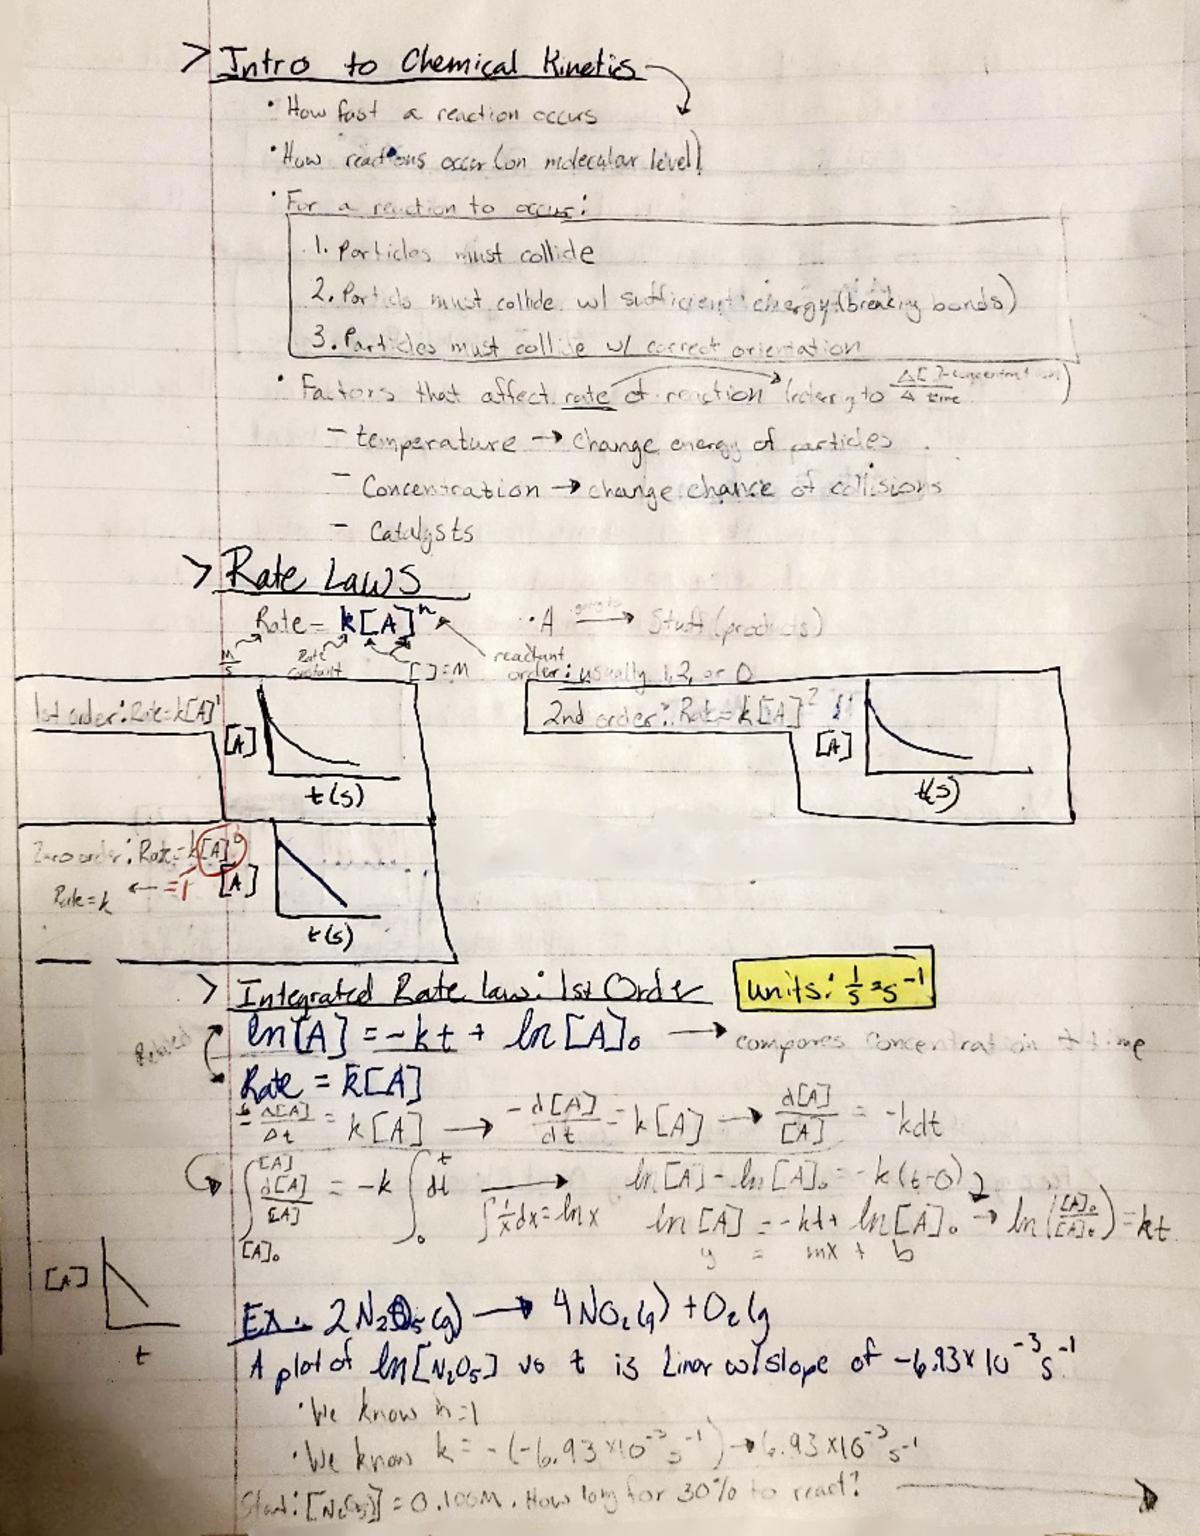 > Intro to Chemical Kinetics
• How fast a reaction occurs
• How reactions occur (on molecular level)
• For a reaction to occur:
1. Particles must collide
2. Particls must collide w/ sufficient energy (breaking bonds)
3. Particles must collide w/ correct orientation
• Factors that affect rate of reaction (refering to Δ[ ]-concentration / Δ time)
- temperature → change energy of particles
- Concentration → change chance of collisions
- Catalysts
> Rate Laws
Rate = k[A]ⁿ
• A → Stuff (products)
M/s Rate constant [ ]=M reactant order: usually 1, 2, or 0
1st order: Rate=k[A]¹
[A]
t(s)
2nd order: Rate=k[A]²
[A]
t(s)
Zero order: Rate=k[A]⁰
Rate=k ← =1
[A]
t(s)
> Integrated Rate law: 1st Order
units: 1/s = s⁻¹
Related
ln[A] = -kt + ln[A]₀ → compares concentration + time
Rate = k[A]
Δ[A]/Δt = k[A] → -d[A]/dt = k[A] → d[A]/[A] = -kdt
∫[A]₀^[A] d[A]/[A] = -k ∫₀^t dt → ln[A] - ln[A]₀ = -k(t-0)
∫1/x dx = ln x
ln[A] = -kt + ln[A]₀ → ln([A]₀/[A]t) = kt
y = mx + b
[A]
t
Ex. 2N₂O₅(g) → 4NO₂(g) + O₂(g
A plot of ln[N₂O₅] vs t is Linar w/slope of -6.93×10⁻³s⁻¹
• We know n=1
• We know k = -(-6.93×10⁻³s⁻¹) → 6.93×10⁻³s⁻¹
Start: [N₂O₅] = 0.100M. How long for 30% to react? →